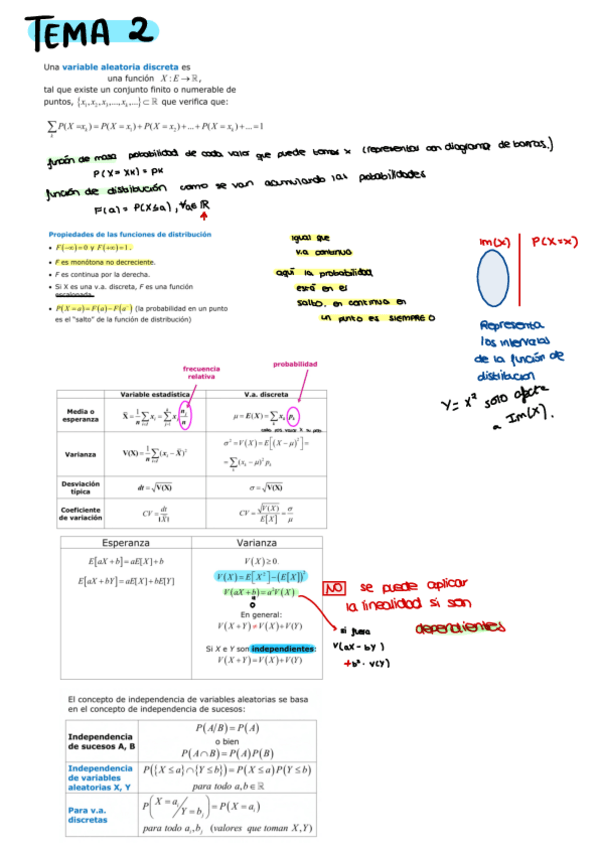 TEMA 2
Una variable aleatoria discreta es
una función X : E → ℝ,
tal que existe un conjunto finito o numerable de
puntos, {x₁, x₂, x₃,..., xₖ,...} ⊂ ℝ que verifica que:
∑ₖ P(X = xₖ) = P(X = x₁) + P(X = x₂) + ... + P(X = xₖ) + ... = 1
función de masa probabilidad de cada valor que puede tomas x (representas con diagrama de barras.)
P(X = XK) = PK
función de distribución como se van acumulando las probabilidades
F(a) = P(X≤a), ∀a∈ℝ
Propiedades de las funciones de distribución
• F(−∞) = 0 y F(+∞) = 1.
• F es monótona no decreciente.
• F es continua por la derecha.
• Si X es una v.a. discreta, F es una función
escalonada.
• P(X = a) = F(a) − F(a⁻) (la probabilidad en un punto
es el "salto" de la función de distribución)
igual que
v.a continua
aquí la probabilidad
está en es
salto, en continua en
un punto es SIEMPRE 0
Im(X)
P(X=x)
Representa
los intervalos
de la función de
distribucion
Y = x² solo afecta
a Im(X).
frecuencia
relativa
probabilidad
Variable estadística
V.a. discreta
Media o
esperanza
μ = E(X) = ∑ₖ xₖ pₖ
Varianza
V(X) = 1/n ∑ (xᵢ − X̄)²
σ² = V(X) = E[(X − μ)²] =
= ∑ₖ (xₖ − μ)² pₖ
Desviación
típica
dt = √V(X)
σ = √V(X)
Coeficiente
de variación
CV = dt / |X̄|
CV = √V(X) / E[X] = σ / μ
Esperanza
Varianza
E[aX + b] = aE[X] + b
E[aX + bY] = aE[X] + bE[Y]
V(X) ≥ 0.
V(X) = E[X²] − (E[X])²
V(aX + b) = a²V(X)
0
En general:
V(X + Y) ≠ V(X) + V(Y)
Si X e Y son independientes:
V(X + Y) = V(X) + V(Y)
NO se puede aplicar
la linealidad si son
dependientes
si fuera
V(aX − bY)
+b² · V(Y)
El concepto de independencia de variables aleatorias se basa
en el concepto de independencia de sucesos:
Independencia
de sucesos A, B
P(A/B) = P(A)
o bien
P(A ∩ B) = P(A)P(B)
Independencia
de variables
aleatorias X, Y
P({X ≤ a} ∩ {Y ≤ b}) = P(X ≤ a)P(Y ≤ b)
para todo a, b ∈ ℝ
Para v.a.
discretas
P(X = aᵢ / Y = bⱼ) = P(X = aᵢ)
para todo aᵢ, bⱼ (valores que toman X, Y)